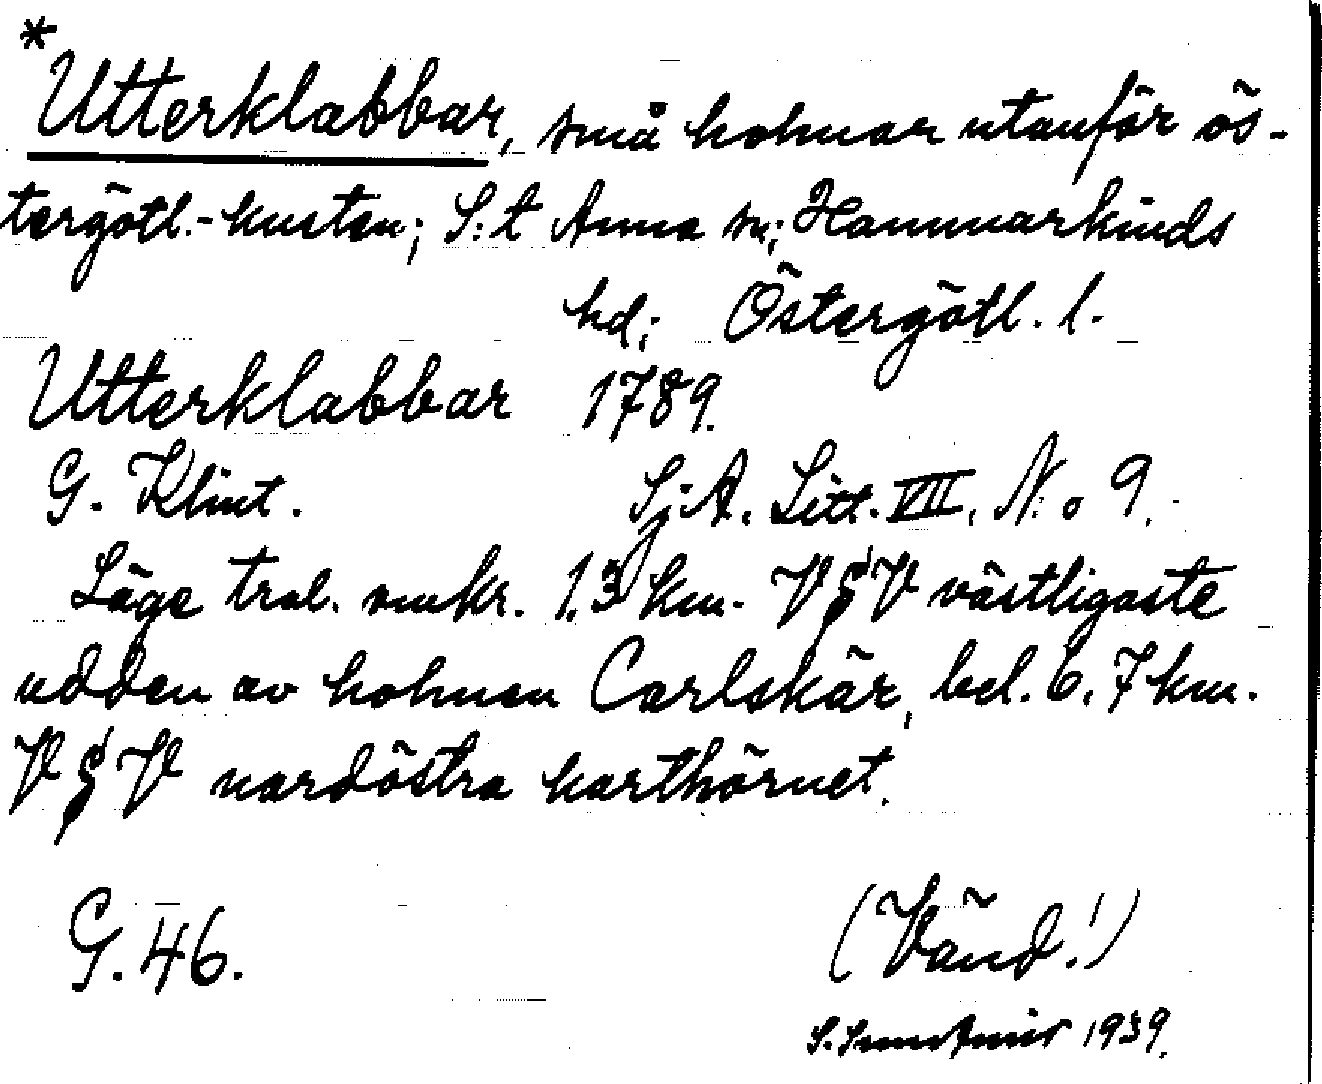 *
Utterklabbar, små holmar utanför ös-
tergötl.-kusten; S:t Anna sn; Hammarkinds
hd; Östergötl. l.
Utterklabbar 1789.
G. Klint. Sj.A. Litt. VII. N:o 9.
Läge trol. omkr. 1.3 km. V§V västligaste
udden av holmen Carlskär, bel. 6.7 km.
V§V nordöstra karthörnet.
G. 46. (Vänd!)
S. 1939.